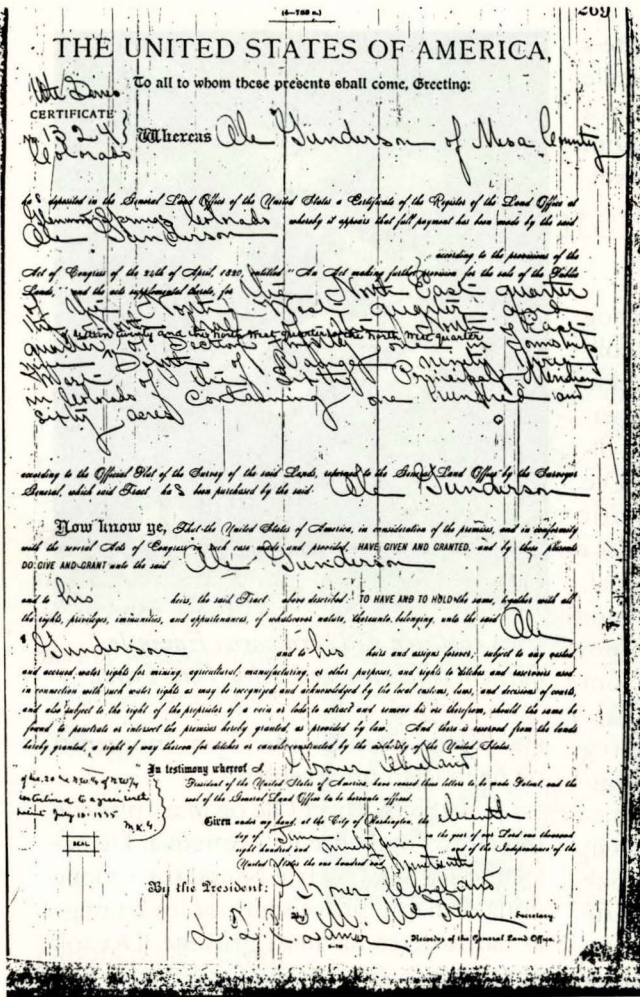 (4—788 a.)
269
THE UNITED STATES OF AMERICA,
To all to whom these presents shall come, Greeting:
Ute Series
CERTIFICATE
No. 1324
Colorado
Whereas Ole Gunderson of Mesa County
has deposited in the General Land Office of the United States a Certificate of the Register of the Land Office at
Glenwood Springs Colorado whereby it appears that full payment has been made by the said
Ole Gunderson
according to the provisions of the
Act of Congress of the 24th of April, 1820, entitled "An Act making further provision for the sale of the Public
Lands," and the acts supplemental thereto, for the North East quarter
of the North West quarter and
the North West quarter of the North East
quarter of Section township
nine South of Range ninety three
West of the Sixth Principal Meridian
in Colorado Containing one hundred and
Sixty acres
according to the Official Plat of the Survey of the said Lands, returned to the General Land Office by the Surveyor
General, which said Tract has been purchased by the said Ole Gunderson
Now know ye, That the United States of America, in consideration of the premises, and in conformity
with the several Acts of Congress in such case made and provided, HAVE GIVEN AND GRANTED, and by these presents
DO GIVE AND GRANT unto the said Ole Gunderson
and to his heirs, the said Tract above described: TO HAVE AND TO HOLD the same, together with all
the rights, privileges, immunities, and appurtenances, of whatsoever nature, thereunto belonging, unto the said Ole
Gunderson and to his heirs and assigns forever; subject to any vested
and accrued water rights for mining, agricultural, manufacturing, or other purposes, and rights to ditches and reservoirs used
in connection with such water rights as may be recognized and acknowledged by the local customs, laws, and decisions of courts,
and also subject to the right of the proprietor of a vein or lode to extract and remove his ore therefrom, should the same be
found to penetrate or intersect the premises hereby granted, as provided by law. And there is reserved from the lands
hereby granted, a right of way thereon for ditches or canals constructed by the authority of the United States.
In testimony whereof I, Grover Cleveland
President of the United States of America, have caused these letters to be made Patent, and the
seal of the General Land Office to be hereunto affixed.
July 10-1935
M.K.G.
SEAL
Given under my hand, at the City of Washington, the eleventh
day of June in the year of our Lord one thousand
eight hundred and ninety and of the Independence of the
United States the one hundred and
By the President: Grover Cleveland
By M. McKean Secretary.
L. Q. C. Lamar Recorder of the General Land Office.